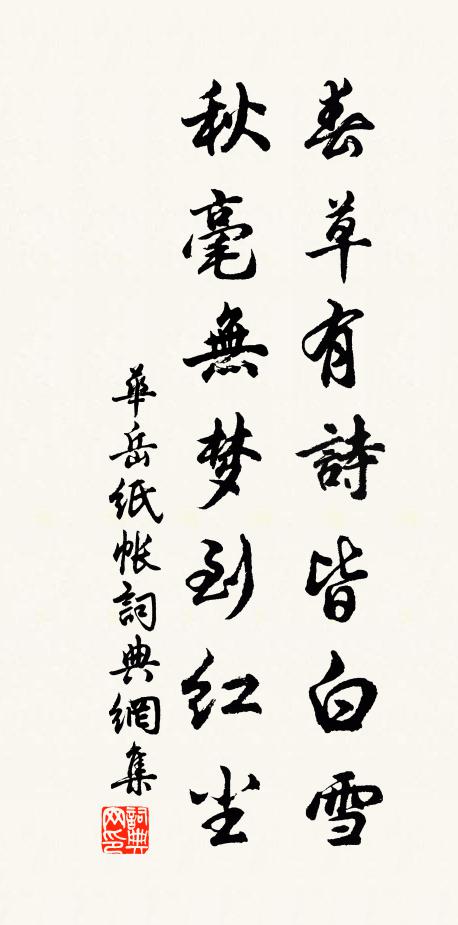 春草有詩皆白雪
秋毫無梦到紅尘
華岳紙帳詞典網集
詞典网印